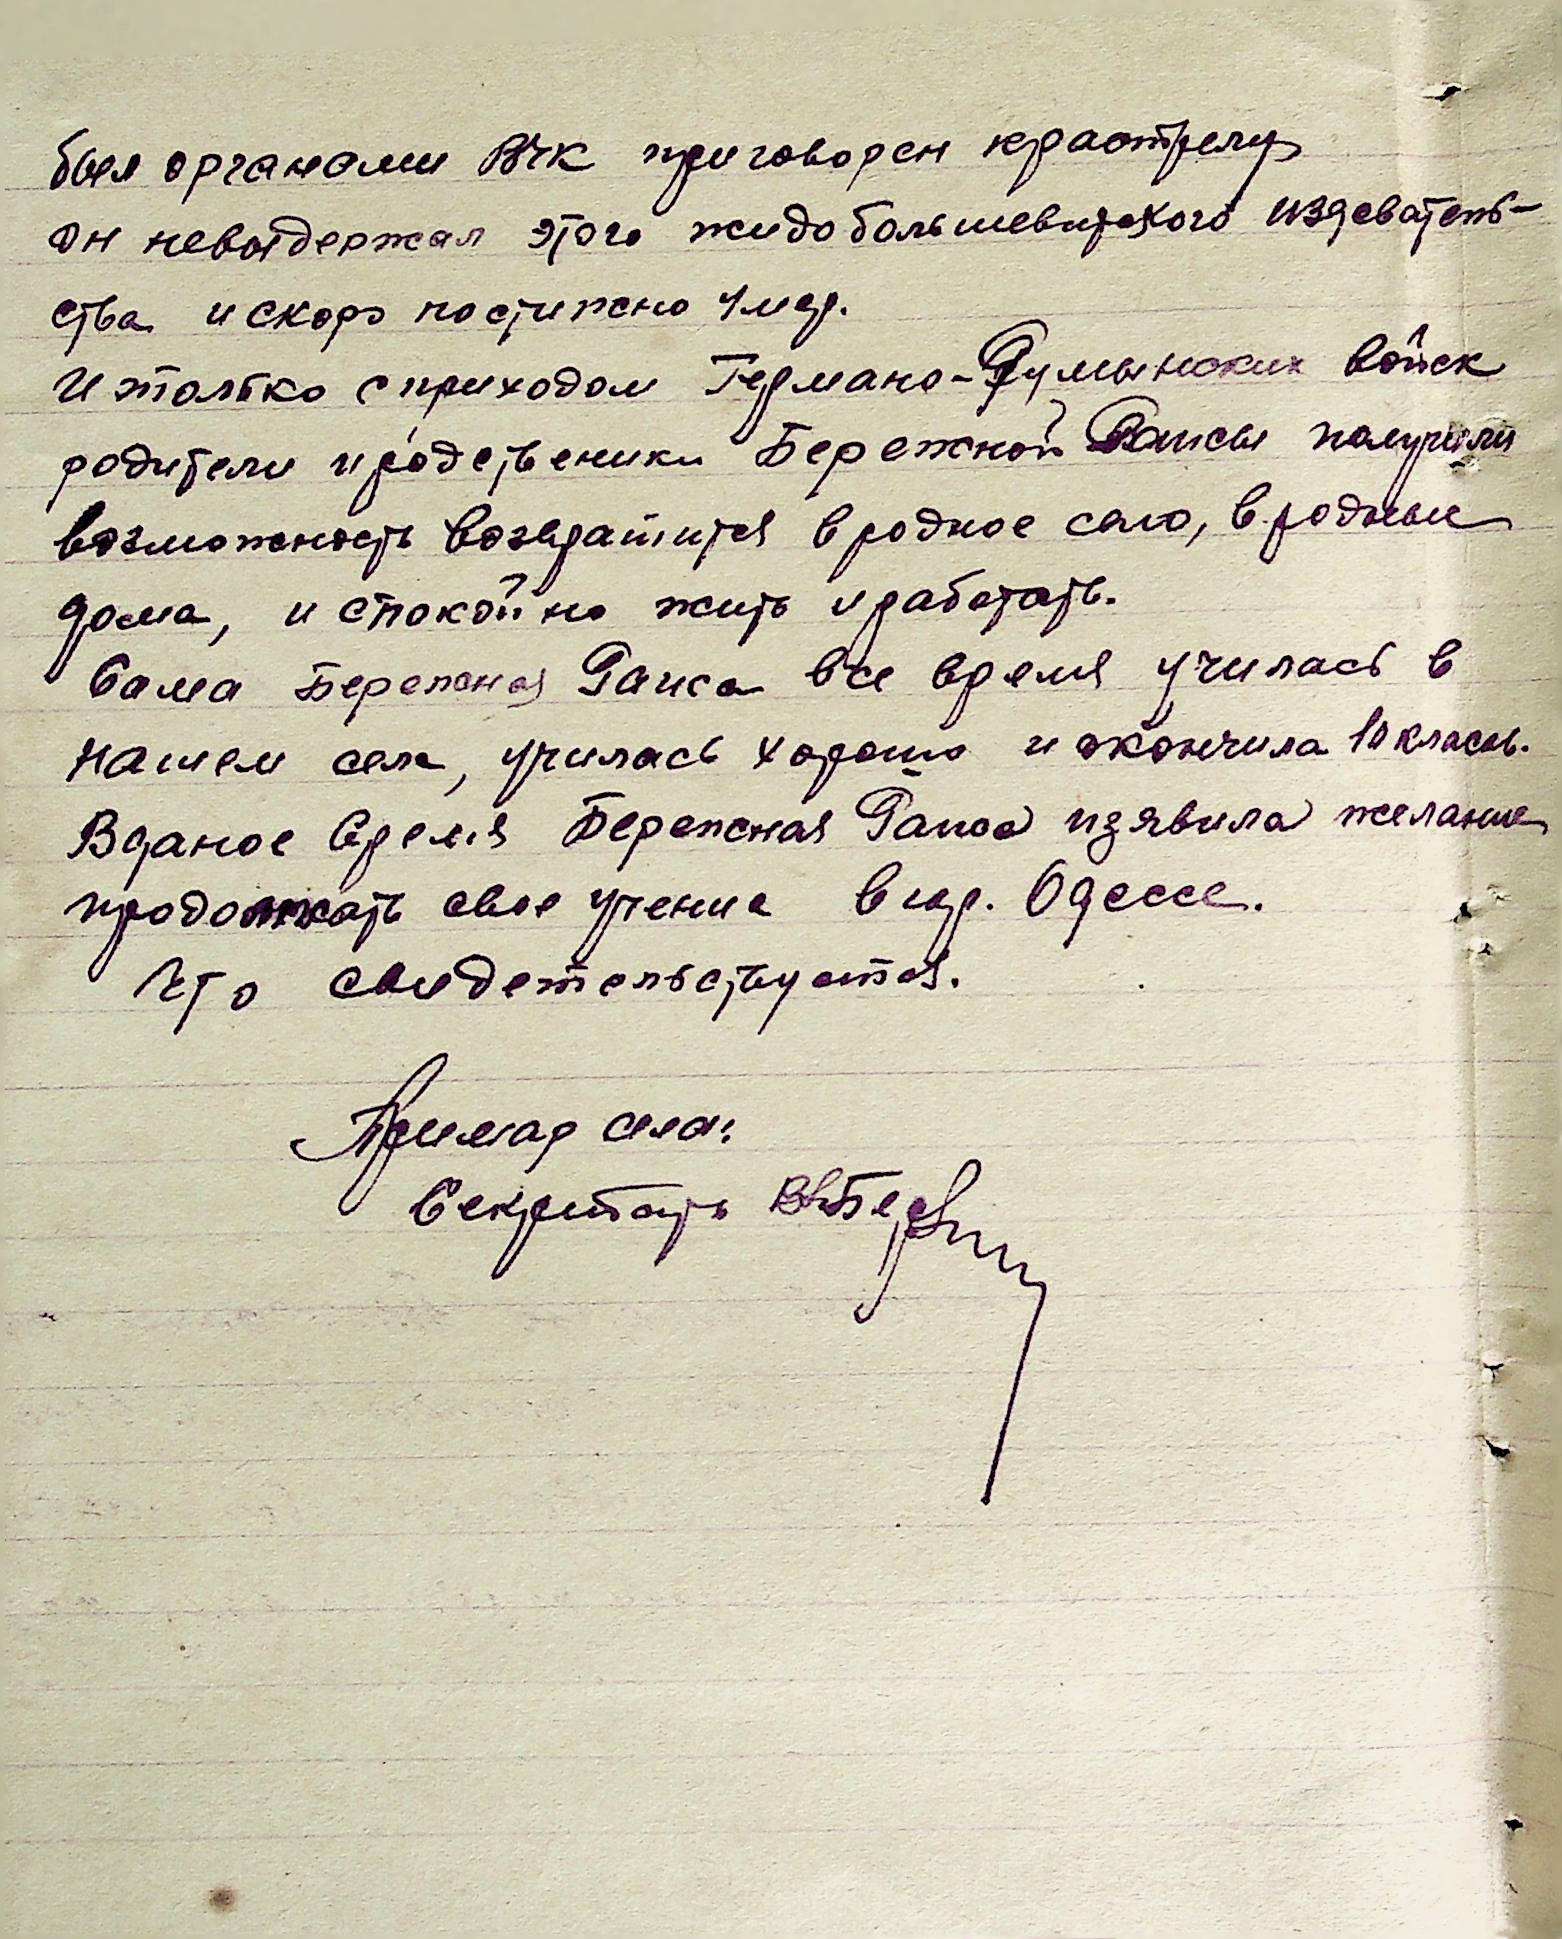 был органами ВЧК приговорен красстрелу
Он невыдержал этого жидобольшевитского издеватель-
ства и скоро постижно умер.
И только с приходом Германо-Румынских войск
родители и родственики Бережной Раисы получили
возможность возвратится в родное село, в родные
дома, и спокойно жить и работать.
Сама Бережная Раиса все время училась в
нашем селе, училась хорошо и окончила 10 класов.
В даное время Бережная Раиса изявила желание
продолжать свое учение в гор. Одессе.
Что свидетельствуется.
Примар села:
Секретарь